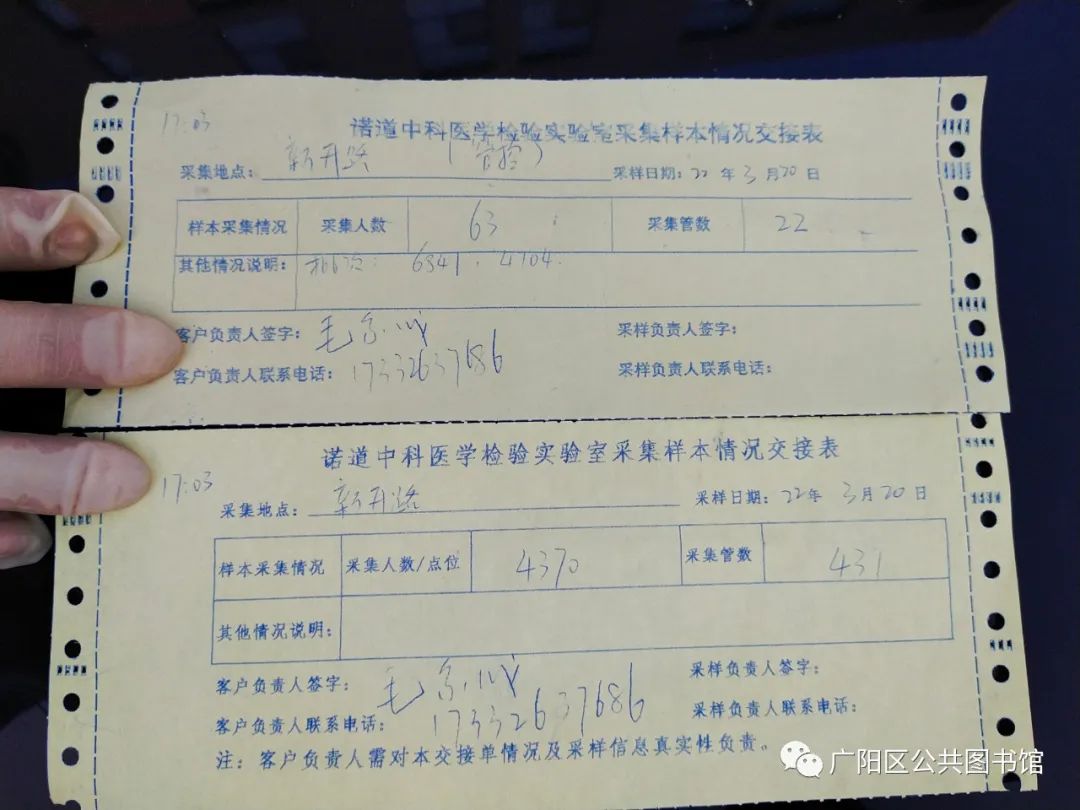 17:03
诺道中科医学检验实验室采集样本情况交接表
(管控)
采集地点: 新开路 采样日期: 22 年 3 月 20 日
样本采集情况 采集人数 63 采集管数 22
其他情况说明: 6341. 4704.
客户负责人签字: 毛 采样负责人签字:
客户负责人联系电话: 17332637686 采样负责人联系电话:
诺道中科医学检验实验室采集样本情况交接表
17:03
采集地点: 新开路 采样日期: 22年 3月 20 日
样本采集情况 采集人数/点位 4370 采集管数 431
其他情况说明:
客户负责人签字: 毛 采样负责人签字:
客户负责人联系电话: 17332637686 采样负责人联系电话:
注: 客户负责人需对本交接单情况及采样信息真实性负责。
广阳区公共图书馆